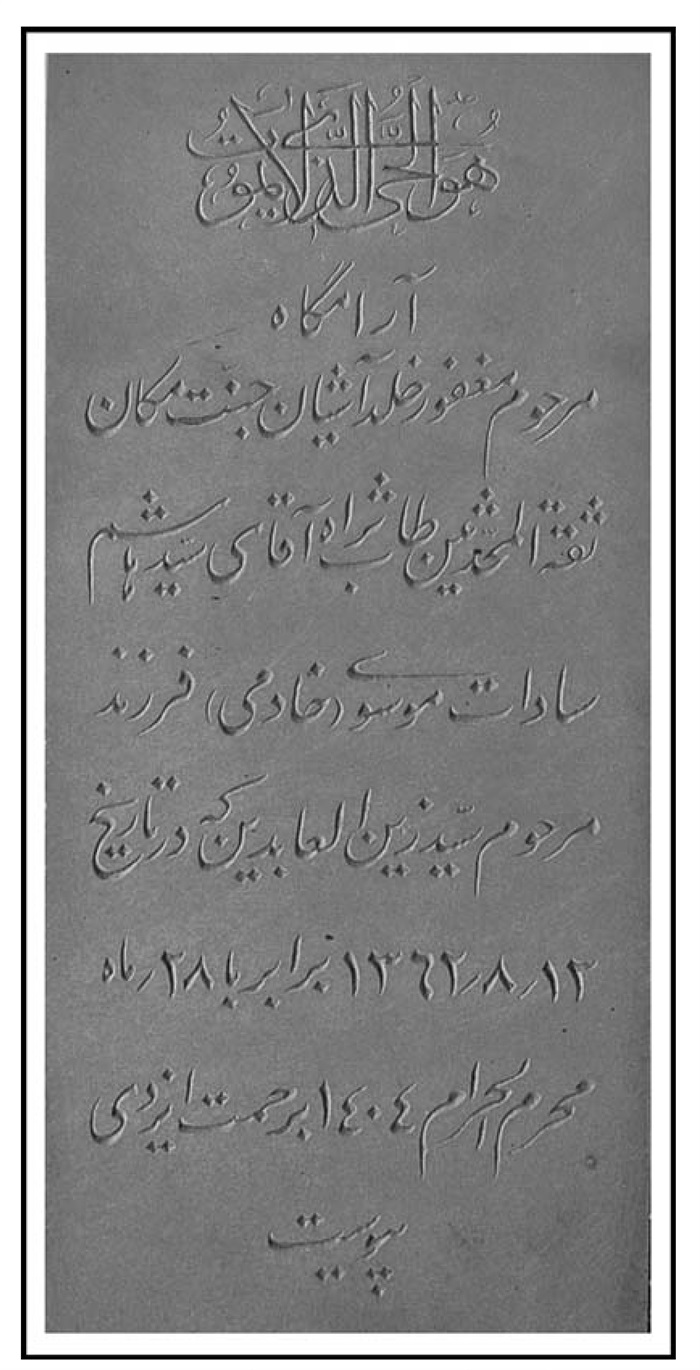 هو الحی الذی لایموت
آرامگاه
مرحوم مغفور خلدآشیان جنت مکان
ثقة المحدثین طاب ثراه آقای سید هاشم
سادات موسوی (خادمی) فرزند
مرحوم سید زین العابدین که در تاریخ
۱۳٫۸٫۱۳۶۲ برابر با ۲۸٫ماه
محرم الحرام ۱۴۰۴ برحمت ایزدی
پیوست